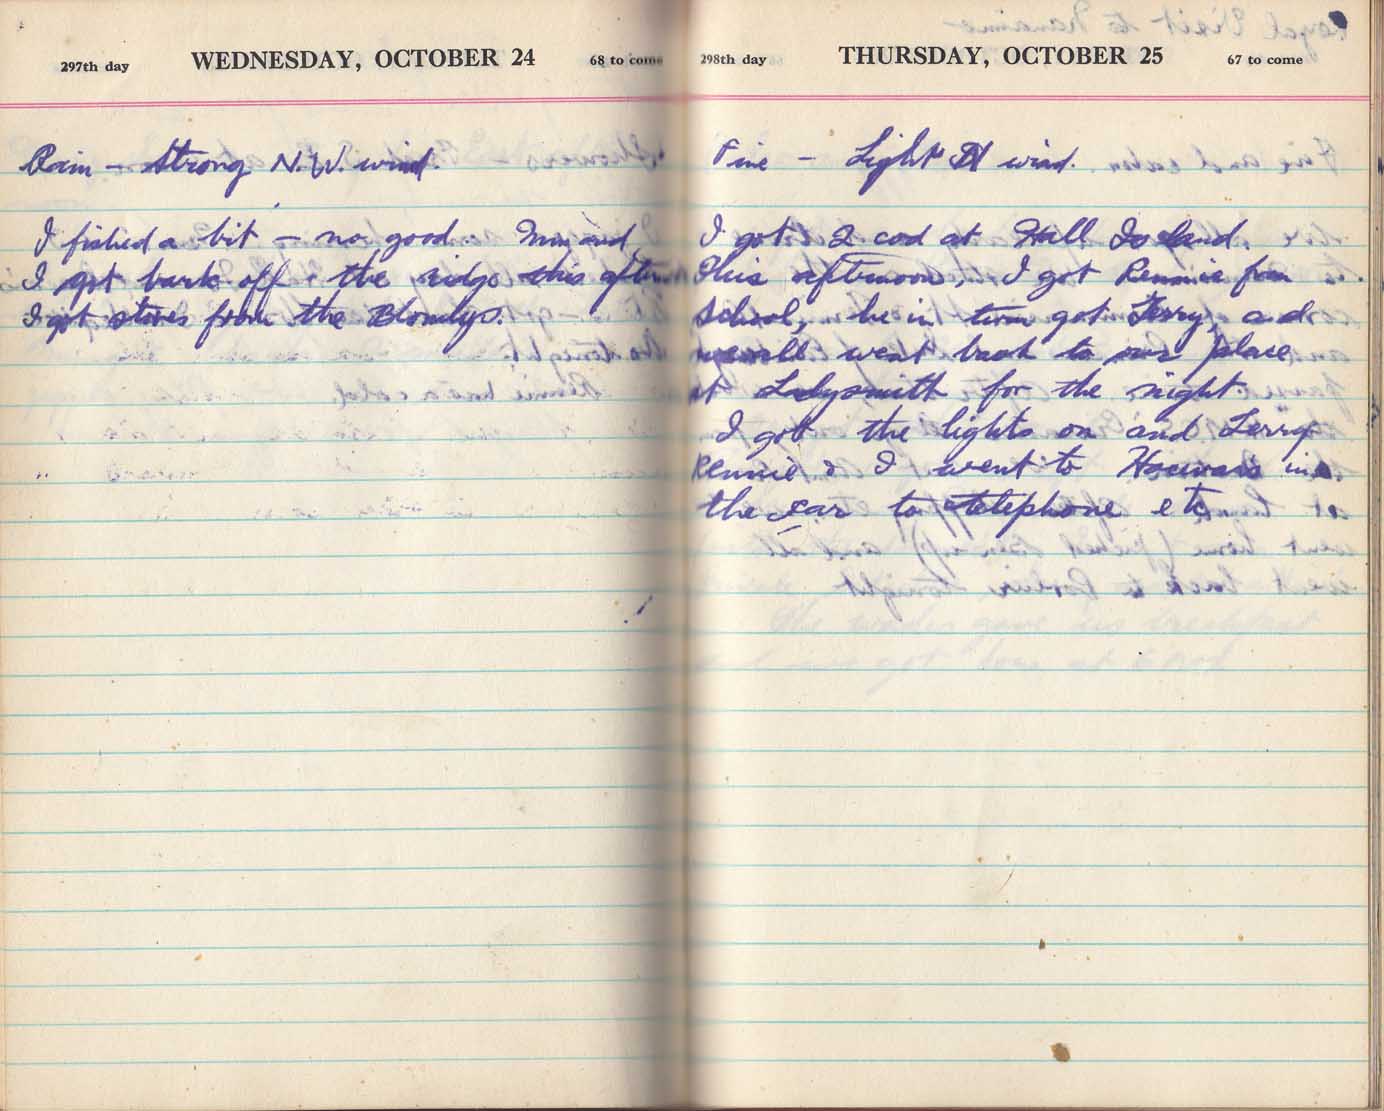 297th day WEDNESDAY, OCTOBER 24 68 to come
Rain — Strong N.W. wind.
I fished a bit — no good. Mum and
I got bark off the ridge this aftern
I got stores from the Blomlys.
298th day THURSDAY, OCTOBER 25 67 to come
Fine — Light wind.
I got 2 cod at Hall Island.
This afternoon, I got Rennie from
School, he in turn got Terry, and
we all went back to our place
at Ladysmith for the night.
I got the lights on and Terry
Rennie & I went to in
the car to telephone etc